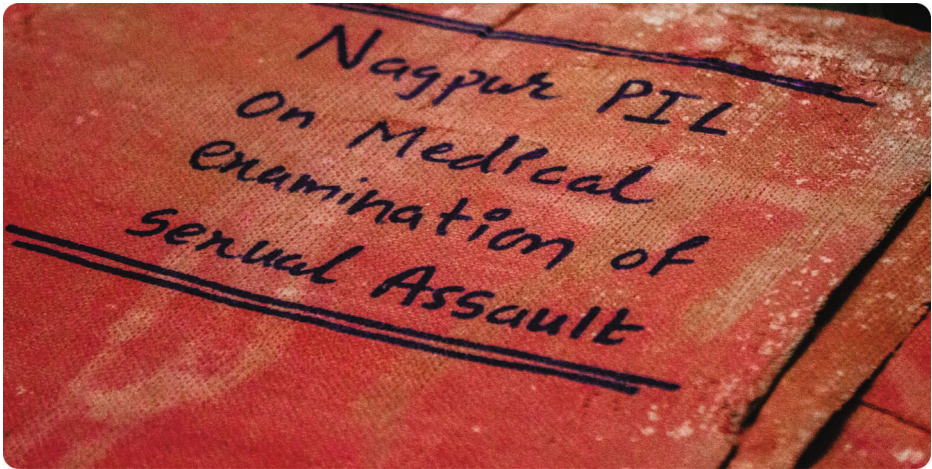 Nagpur PIL
on Medical
examination of
sexual Assault